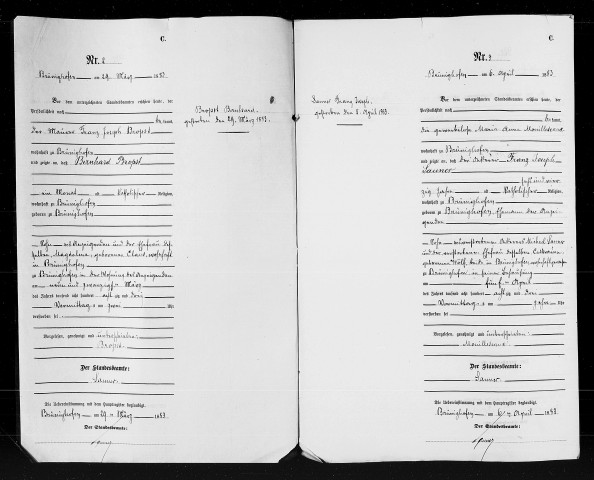 C.
Nr. 2
Brünighofen am 29. März 1883.
Vor dem unterzeichneten Standesbeamten erschien heute, der
Persönlichkeit nach
bekannt,
der Maurer Franz Joseph Bropst
wohnhaft zu Brünighofen
und zeigte an, daß Bernhard Bropst
ein Monat alt katholischer Religion,
wohnhaft zu Brünighofen
geboren zu Brünighofen
Sohn des Anzeigenden und der Ehefrau
Magdalena, geborene wohnhaft
in Brünighofen
zu Brünighofen in der Wohnung des Anzeigenden
am neun und zwanzigsten März
des Jahres tausend acht hundert achtzig und drei
Vormittags um zwei Uhr
verstorben sei
Vorgelesen, genehmigt und unterschrieben
Bropst
Der Standesbeamte:
Sauner
Die Uebereinstimmung mit dem Hauptregister beglaubigt.
Brünighofen am 29 ten März 1883.
Der Standesbeamte:
Bropst Bernhard.
gestorben den 29. März 1883.
Franz Joseph.
gestorben den 5. April 1883.
C.
Nr. 3
Brünighofen am 6. April 1883.
Vor dem unterzeichneten Standesbeamten erschien heute, der
Persönlichkeit nach
bekannt,
die gewerbelose Maria Anna
wohnhaft zu Brünighofen
und zeigte an, daß der Ackerer Franz Joseph
Sauner
fünf und vier-
zig Jahre alt katholischer Religion,
wohnhaft zu Brünighofen
geboren zu Brünighofen, Ehemann der Anzei-
genden
Sohn des verstorbenen Ackerers Michel Sauner
und der verstorbenen Ehefrau desselben Catharina
geborene Wolf, beide in Brünighofen wohnhaft
zu Brünighofen in seiner Behausung
am fünften April
des Jahres tausend acht hundert achtzig und drei
Vormittags um zehn Uhr
verstorben sei
Vorgelesen, genehmigt und unterschrieben
Der Standesbeamte:
Sauner
Die Uebereinstimmung mit dem Hauptregister beglaubigt.
Brünighofen am 6 ten April 1883.
Der Standesbeamte: